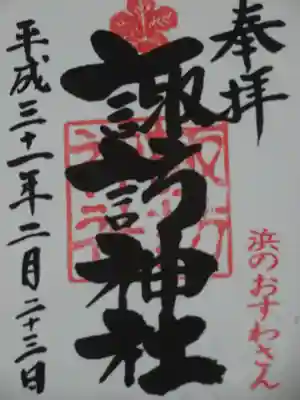 奉拝
諏訪神社
浜のおすわさん
平成三十一年二月二十三日